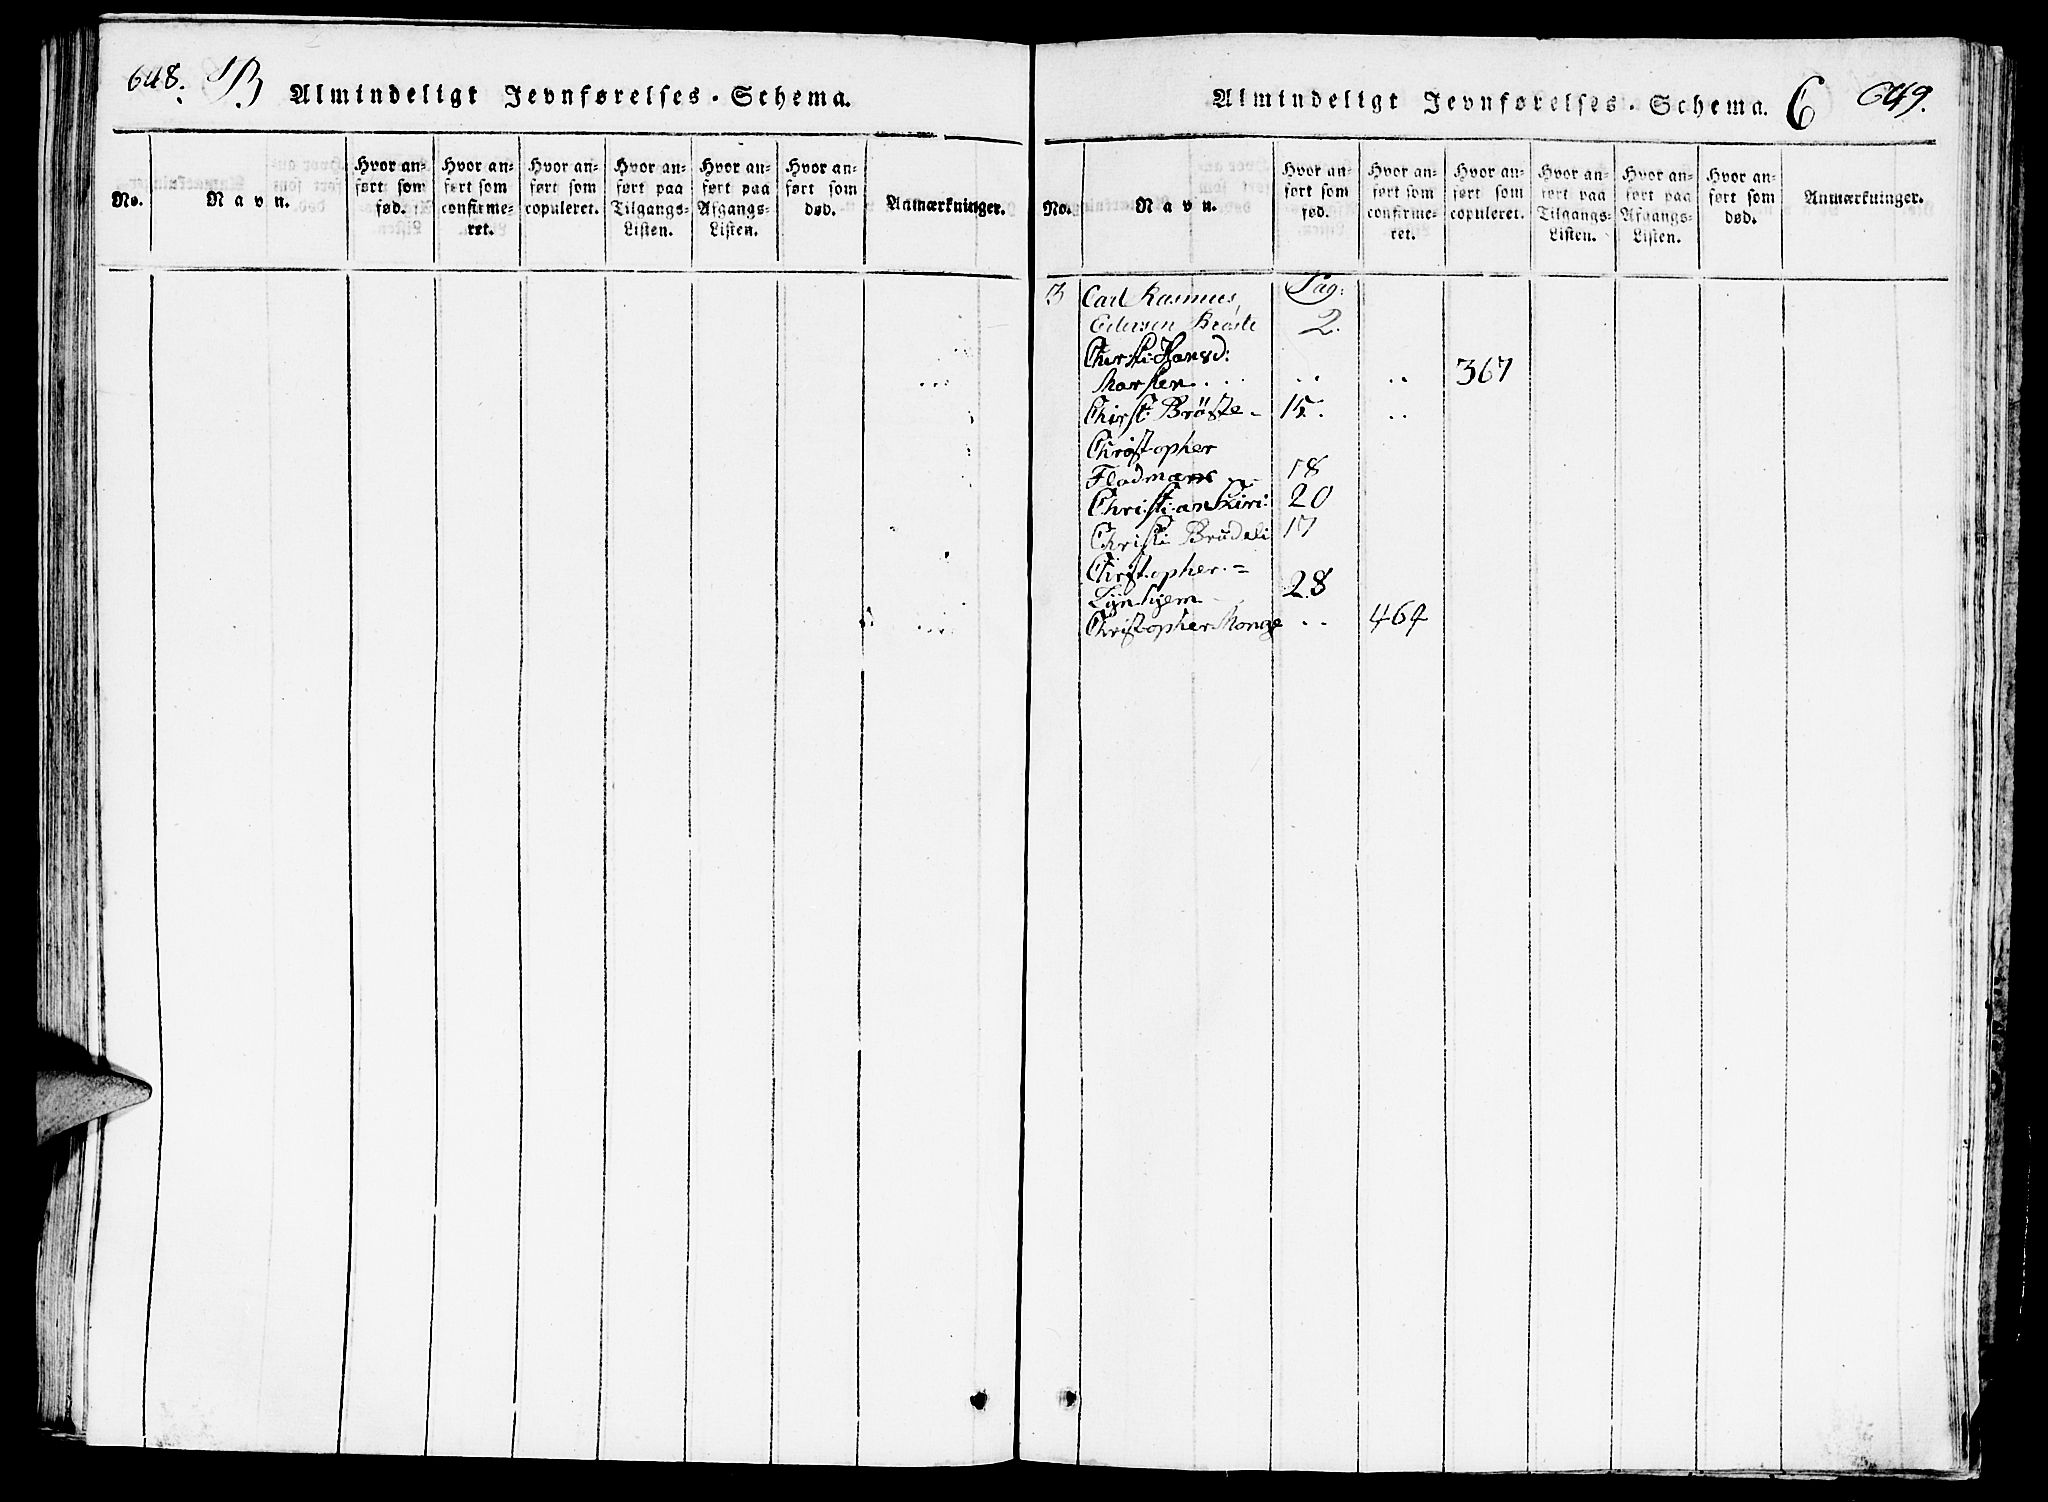 648. B Almindeligt Jevnførelses-Schema.
No.
Navn.
Hvor an-
ført som
fød.
Hvor an-
ført som
confirme-
ret.
Hvor an-
ført som
copuleret.
Hvor an-
ført paa
Tilgangs-
Listen.
Hvor an-
ført paa
Afgangs-
Listen.
Hvor an-
ført som
død.
Anmærkninger.
Almindeligt Jevnførelses-Schema. C 649.
No.
Navn.
Hvor an-
ført som
fød.
Hvor an-
ført som
confirme-
ret.
Hvor an-
ført som
copuleret.
Hvor an-
ført paa
Tilgangs-
Listen.
Hvor an-
ført paa
Afgangs-
Listen.
Hvor an-
ført som
død.
Anmærkninger.
3 Carl Rasmus Pag:
Edersen Brøste 2.
Christi: Hansd:
.. .. 367
Christ: Brøste - 15. ..
Christopher
Flodmans 18
Christian 20
Christi 17
Christopher =
28
Christopher Monge .. 464